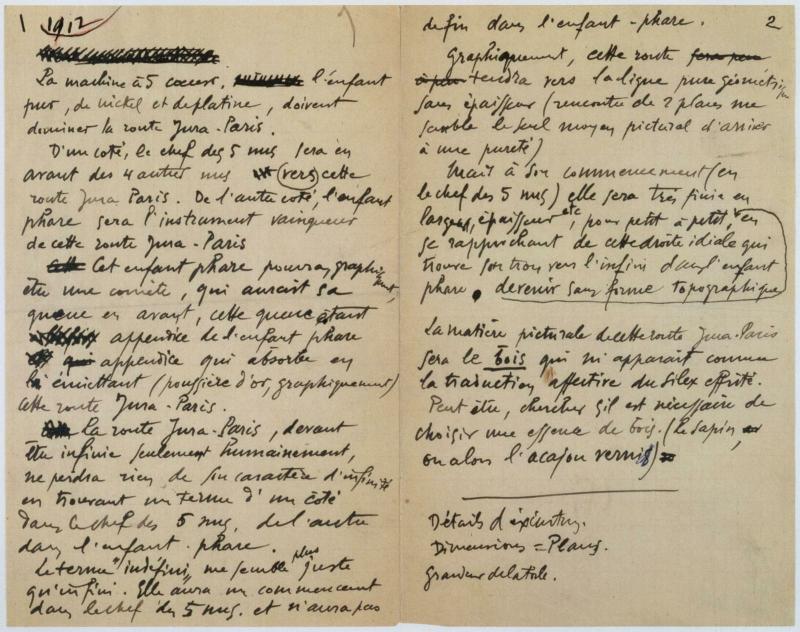 1 1912
La machine à 5 coeurs, l'enfant
pur, de nickel et de platine, doivent
dominer la route Jura-Paris.
D'un coté, le chef des 5 nus sera en
avant des 4 autres nus (vers) cette
route Jura Paris. De l'autre coté, l'enfant
phare sera l'instrument vainqueur
de cette route Jura-Paris
Cet enfant phare pourra, graphiquement,
être une comète, qui aurait sa
queue en avant, cette queue étant
appendice de l'enfant phare
appendice qui absorbe en
émiettant (poussière d'or, graphiquement)
cette route Jura-Paris.
La route Jura-Paris, devant
être infinie seulement humainement,
ne perdra rien de son caractère d'infinité
en trouvant un terme d'un coté
dans le chef des 5 nus, de l'autre
dans l'enfant-phare.
Le terme "indéfini" me semble plus juste
qu'infini. Elle aura un commencement
dans le chef des 5 nus. et n'aura pas
2
de fin dans l'enfant-phare.
Graphiquement, cette route fera peu
à peu tendra vers la ligne pure géométrique
sans épaisseur (rencontre de 2 plans me
semble le seul moyen pictural d'arriver
à une pureté)
Mais à son commencement (en
le chef des 5 nus) elle sera très finie en
largeur, épaisseur etc, pour petit à petit, en
se rapprochant de cette droite idéale qui
trouve son trou vers l'infini dans l'enfant
phare. devenir sans forme topographique
La matière picturale de cette route Jura-Paris
sera le bois qui m'apparait comme
la traduction affective du Silex effrité.
Peut être, chercher s'il est nécessaire de
choisir une essence de bois. (Le sapin,
ou alors l'acajou vernis)
Détails d'éxécution.
Dimensions = Plans.
Grandeur de la toile.